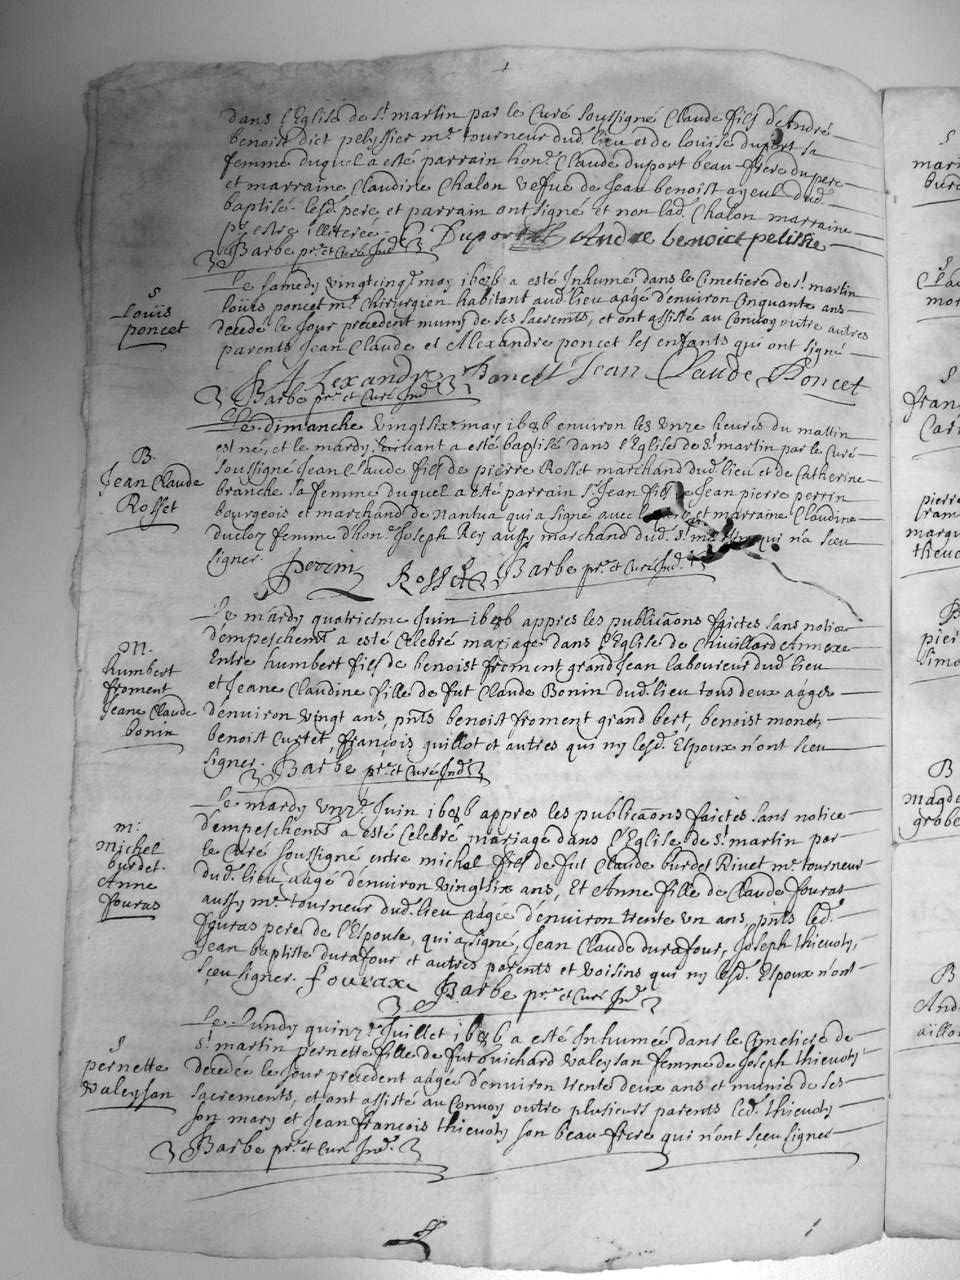 dans l'Eglise de st martin par le Curé soussigné Claude fils d'André
benoist dict pelyssier me tourneur dud. lieu et de louise duport sa
femme duquel a esté parrain hone Claude duport beau frere du pere
et marraine Claudine Chalon vefve de Jean benoist ayeul dud.
baptisé. lesd. pere et parrain ont signé et non lad. Chalon marraine
pr estre illiterée.
Duport Andre benoict pelissie
Barbe pre et Curé Ind.
S
Louis
poncet
Le samedy vingtcinqe may 1686 a esté Inhumé dans le Cimetiere de st martin
louis poncet me Chirurgien habitant aud. lieu aagé d'environ Cinquante ans
decedé le Jour precedent muny de ses sacremts, et ont assisté au Convoy outre autres
parents Jean Claude et Alexandre poncet ses enfants qui ont signé
Alexandre Poncet Jean Claude Poncet
Barbe pre et Curé Ind.
B.
Jean Claude
Rosset
Le dimanche vingtsix may 1686 environ les unze heures du mattin
est né, et le mardy suivant a esté baptisé dans l'Eglise de st martin par le Curé
soussigné Jean Claude fils de pierre Rosset marchand dud. lieu et de Catherine
branche sa femme duquel a esté parrain sr Jean fils de Jean pierre perrin
bourgeois et marchand de nantua qui a signé avec et marraine Claudine
ducloz femme d'hone Joseph Rey aussy marchand dud. st martin qui n'a sceu
signer. Perrin Rosset Barbe pre et Curé Ind.
M.
humbert
froment
Jeane Claude
bonin
Le mardy quatriesme Juin 1686 appres les publicaons faictes sans notice
d'empeschemt a esté Celebré mariage dans l'Eglise de Chivillard Annexe
Entre humbert fils de benoist froment grand Jean laboureur dud. lieu
et Jeane Claudine fille de fut Claude Bonin dud. lieu tous deux aagés
d'environ vingt ans, pnts benoist froment grand bert, benoist monet
benoist Curtet, françois guillot et autres qui ny lesd. Espoux n'ont sceu
signer. Barbe pre et Curé Ind.
m.
michel
burdet
Anne
fouras
Le mardy unze Juin 1686 appres les publicaons faictes sans notice
d'empeschemt a esté Celebré mariage dans l'Eglise de st martin par
le Curé soussigné entre michel fils de fut Claude burdet Rivet me tourneur
dud. lieu aagé d'environ vingtsix ans, Et Anne fille de Claude fouras
aussy me tourneur dud. lieu aagée d'environ trente un ans, pnts led.
fouras pere de l'Espouse, qui a signé, Jean Claude durafour, Joseph thievoty,
Jean baptiste durafour et autres parents et voisins qui ny lesd. Espoux n'ont
sceu signer. fourax Barbe pre et Curé Ind.
S
pernette
Valeysan
Le Lundy quinze Juillet 1686 a esté Inhumée dans le Cimetiere de
st martin pernette fille de fut Guichard Valeysan femme de Joseph thievoty
decedée le Jour precedent aagée d'environ trente deux ans et munie de ses
sacrements, et ont assisté au Convoy outre plusieurs parents led. thievoty
son mary et Jean françois thievoty son beau frere qui n'ont sceu signer
Barbe pre et Curé Ind.